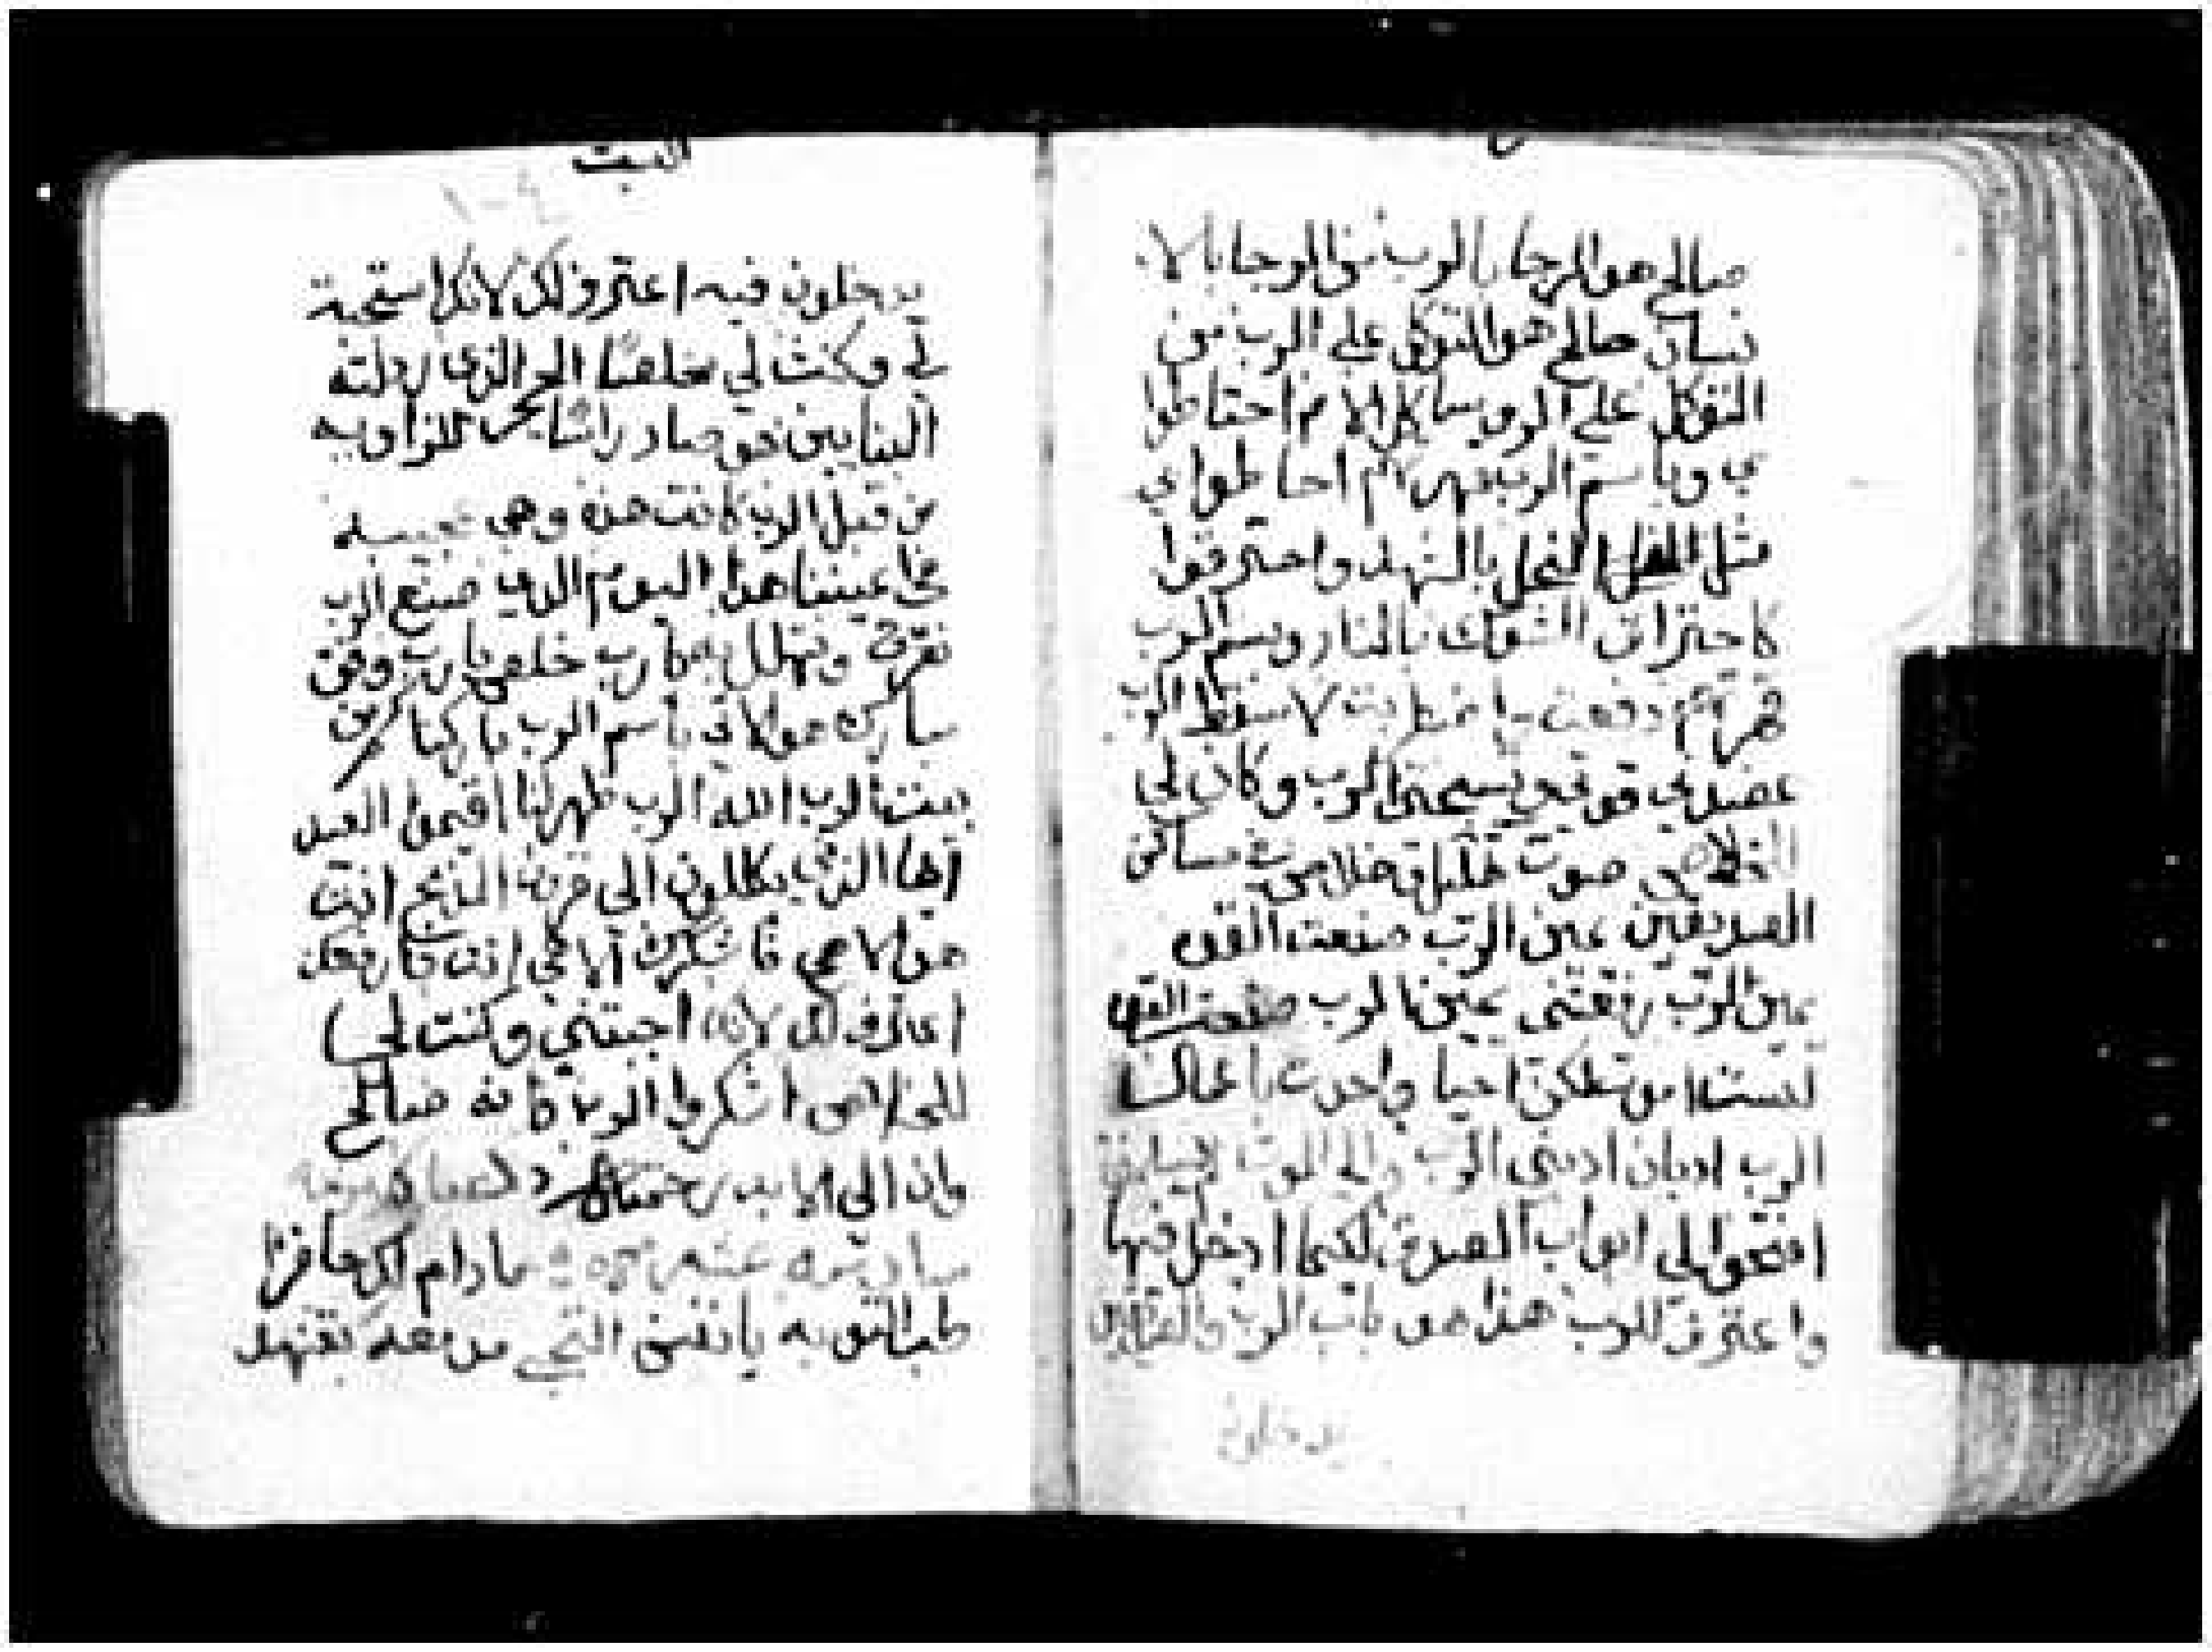 صالح هو الرجا بالرب من الرجا بالا
نسان صالح هو التوكل على الرب من
التوكل على الروسا كل الامم احتاطوا
بي وباسم الرب قهرتهم احاطوا بي
مثل النحل بالشهد واحترقوا
كاحتراق الشوك بالنار وبسم الرب
قهرتهم دفعت واضطربت لاسقط الرب
عضدني قوتي وتسبحتي الرب وكان لي
الخلاص صوت تهليل وخلاص في مساكن
الصديقين يمين الرب صنعت القوه
يمين الرب رفعتني يمين الرب صنعت القوه
لست اموت لكن احيا واحدث باعمال
الرب ادبا ادبني الرب والى الموت لم يسلمني
افتحوا لي ابواب الصدق لكيما ادخل فيها
واعترف للرب هذا هو باب الرب والصديقين
يدخلون
السبت
يدخلون فيه اعترف لك لانك استجبت
لي وكنت لي مخلصا الحجر الذي رذلته
البنايين هو صار راسا للزاويه
من قبل الرب كانت هذه وهي عجيبه
في اعيننا هذا اليوم الذي صنع الرب
نفرح ونتهلل به يا رب خلص يا رب وفق
مبارك هو الاتي باسم الرب باركناكم من
بيت الرب الله الرب ظهر لنا اقيموا العيد
ايها الذين يكللون الى قرن المذبح انت
هو الاهي فاشكرك الاهي انت فارفعك
اعترف لك لانك اجبتني وكنت لي
للخلاص اشكروا الرب فانه صالح
وان الى الابد رحمته
مادام
طلبا للتوبه يا نفسي التي تتنهد